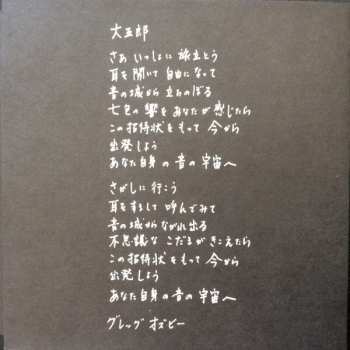 大五郎
さあ いっしょに 旅立とう
耳を開いて 自由になって
音の城から 立ちのぼる
七色の 響を あなたが 感じたら
この 招待状を もって 今から
出発しよう
あなた自身の 音の 宇宙へ
さがしに 行こう
耳をすまして 呼んでみて
音の城から ながれ出る
不思議な こだまが きこえたら
この 招待状を もって 今から
出発しよう
あなた自身の 音の 宇宙へ
グレッグ オズビー